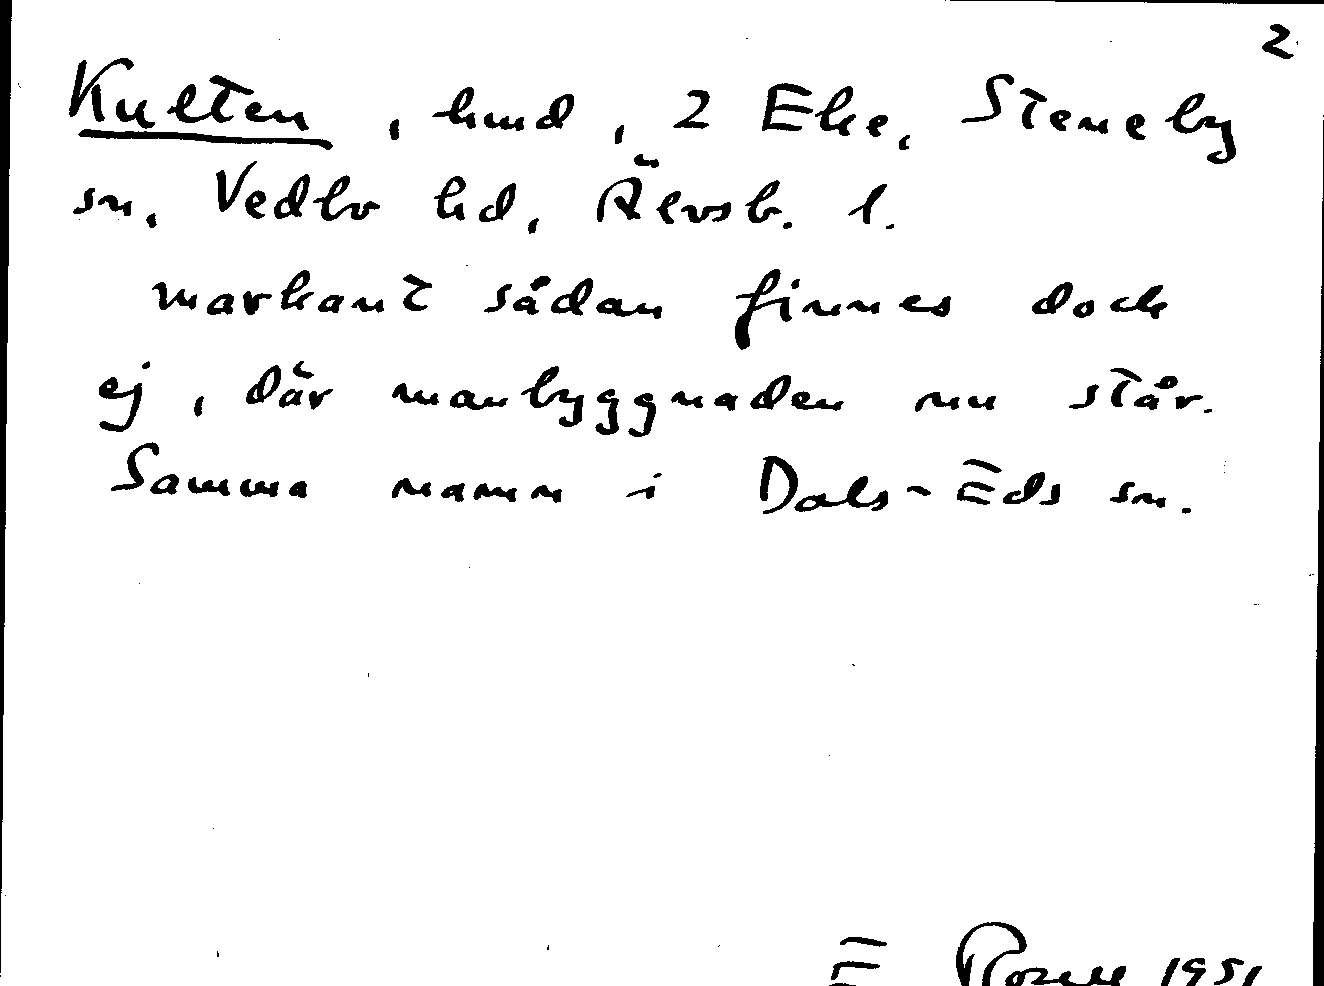 2
Kulten, hmd, 2 Eke, Steneby
sn, Vedbo hd, Älvsb. l.
markant sådan finnes dock
ej, där manbyggnaden nu står.
Samma namn i Dals-Eds sn.
E Rosell 1951